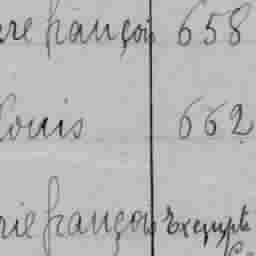 françois 658
Louis 662
françois Exempté